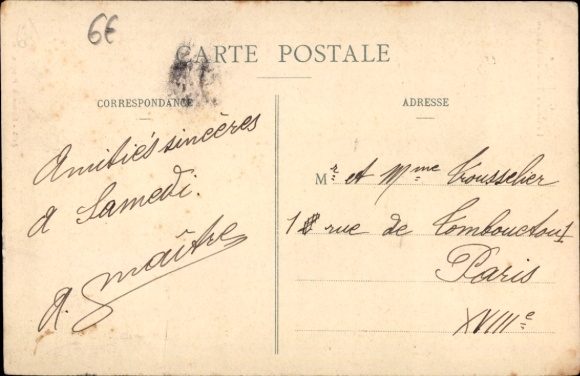 6€
CARTE POSTALE
CORRESPONDANCE
ADRESSE
Amitiés sincères
A Samedi.
A. Maître
Mr et Mme Trousselier
rue de Tombouctou
Paris
XVIIIe